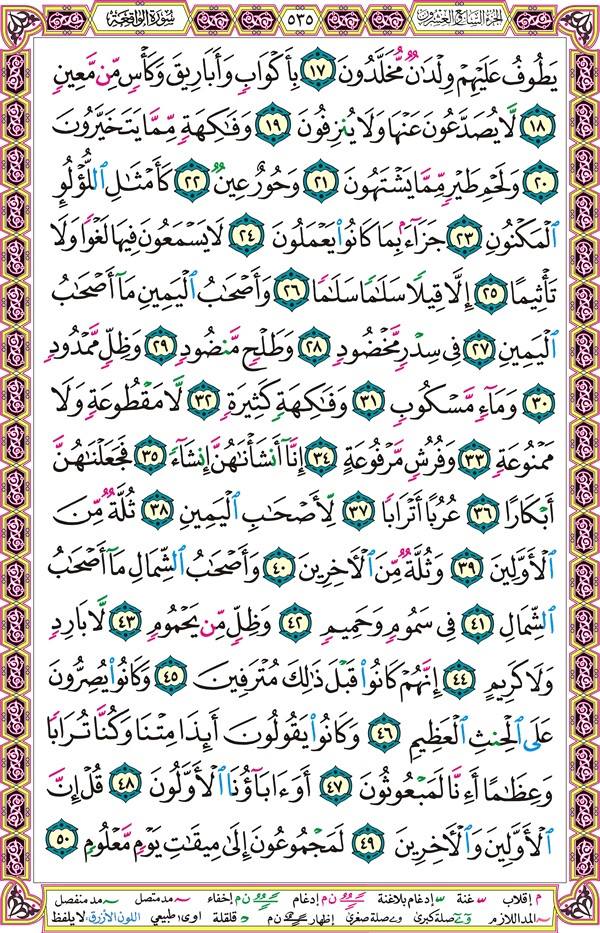 الجزء السابع والعشرون ٥٣٥ سورة الواقعة
يَطُوفُ عَلَيْهِمْ وِلْدَٰنٌ مُّخَلَّدُونَ ١٧ بِأَكْوَابٍ وَأَبَارِيقَ وَكَأْسٍ مِّن مَّعِينٍ
١٨ لَّا يُصَدَّعُونَ عَنْهَا وَلَا يُنزِفُونَ ١٩ وَفَٰكِهَةٍ مِّمَّا يَتَخَيَّرُونَ
٢٠ وَلَحْمِ طَيْرٍ مِّمَّا يَشْتَهُونَ ٢١ وَحُورٌ عِينٌ ٢٢ كَأَمْثَٰلِ ٱللُّؤْلُؤِ
ٱلْمَكْنُونِ ٢٣ جَزَآءًۢ بِمَا كَانُوا۟ يَعْمَلُونَ ٢٤ لَا يَسْمَعُونَ فِيهَا لَغْوًا وَلَا
تَأْثِيمًا ٢٥ إِلَّا قِيلًا سَلَٰمًا سَلَٰمًا ٢٦ وَأَصْحَٰبُ ٱلْيَمِينِ مَآ أَصْحَٰبُ
ٱلْيَمِينِ ٢٧ فِى سِدْرٍ مَّخْضُودٍ ٢٨ وَطَلْحٍ مَّنضُودٍ ٢٩ وَظِلٍّ مَّمْدُودٍ
٣٠ وَمَآءٍ مَّسْكُوبٍ ٣١ وَفَٰكِهَةٍ كَثِيرَةٍ ٣٢ لَّا مَقْطُوعَةٍ وَلَا
مَمْنُوعَةٍ ٣٣ وَفُرُشٍ مَّرْفُوعَةٍ ٣٤ إِنَّآ أَنشَأْنَٰهُنَّ إِنشَآءً ٣٥ فَجَعَلْنَٰهُنَّ
أَبْكَارًا ٣٦ عُرُبًا أَتْرَابًا ٣٧ لِّأَصْحَٰبِ ٱلْيَمِينِ ٣٨ ثُلَّةٌ مِّنَ
ٱلْأَوَّلِينَ ٣٩ وَثُلَّةٌ مِّنَ ٱلْـَٔاخِرِينَ ٤٠ وَأَصْحَٰبُ ٱلشِّمَالِ مَآ أَصْحَٰبُ
ٱلشِّمَالِ ٤١ فِى سَمُومٍ وَحَمِيمٍ ٤٢ وَظِلٍّ مِّن يَحْمُومٍ ٤٣ لَّا بَارِدٍ
وَلَا كَرِيمٍ ٤٤ إِنَّهُمْ كَانُوا۟ قَبْلَ ذَٰلِكَ مُتْرَفِينَ ٤٥ وَكَانُوا۟ يُصِرُّونَ
عَلَى ٱلْحِنثِ ٱلْعَظِيمِ ٤٦ وَكَانُوا۟ يَقُولُونَ أَئِذَا مِتْنَا وَكُنَّا تُرَابًا
وَعِظَٰمًا أَءِنَّا لَمَبْعُوثُونَ ٤٧ أَوَءَابَآؤُنَا ٱلْأَوَّلُونَ ٤٨ قُلْ إِنَّ
ٱلْأَوَّلِينَ وَٱلْـَٔاخِرِينَ ٤٩ لَمَجْمُوعُونَ إِلَىٰ مِيقَٰتِ يَوْمٍ مَّعْلُومٍ ٥٠
م إقلاب غنة إدغام بلاغنة ن م إدغام ن م إخفاء مد متصل مد منفصل
المد اللازم صلة كبرى صلة صغرى إظهار ن م قلقلة اوى طبيعي اللون الأزرق لا يلفظ